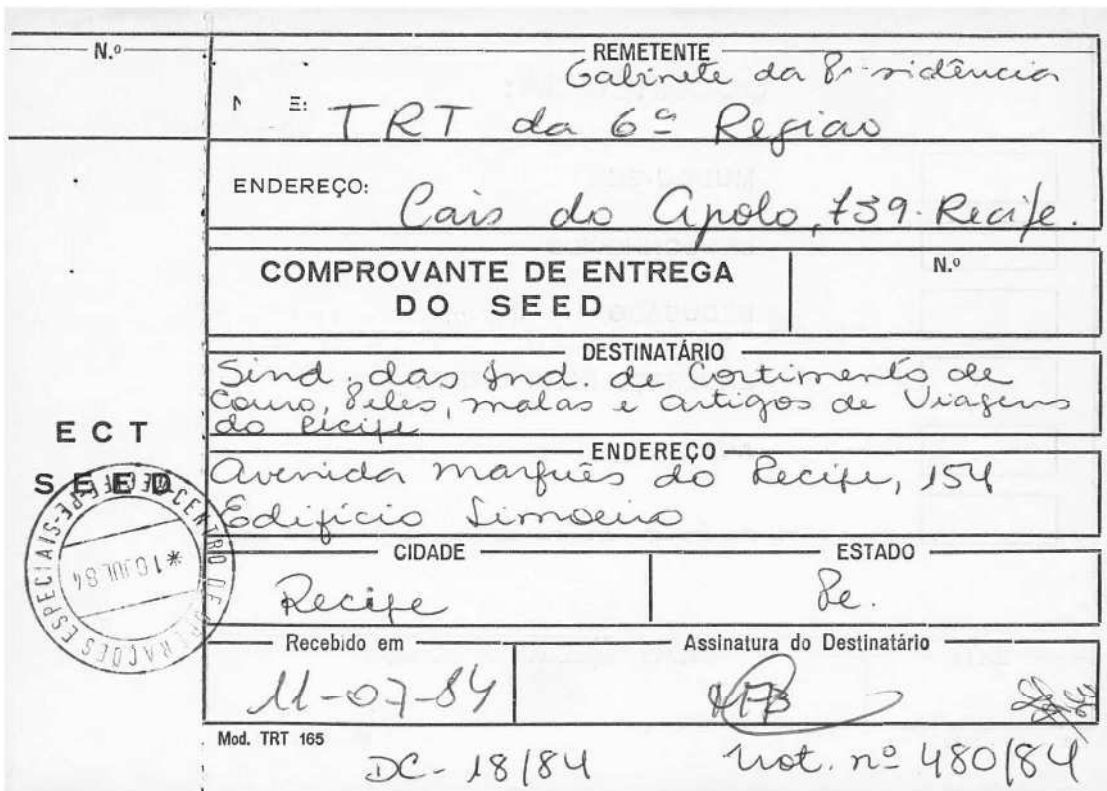 N.º
REMETENTE
Gabinete da Presidência
E: TRT da 6ª Regiao
ENDEREÇO: Cais do Apolo, 739. Recife.
COMPROVANTE DE ENTREGA
DO SEED
N.º
DESTINATÁRIO
Sind. das Ind. de Cortimento de
Couro, Peles, malas e artigos de Viagens
do Recife
ENDEREÇO
Avenida Marquês do Recife, 154
Edifício Limoeiro
CIDADE
Recife
ESTADO
Pe.
Recebido em
11-07-84
Assinatura do Destinatário
ECT
SEED
CENTRO DE OPERAÇÕES ESPECIAIS
*10 JUL 84
Mod. TRT 165
DC-18/84
Not. nº 480/84